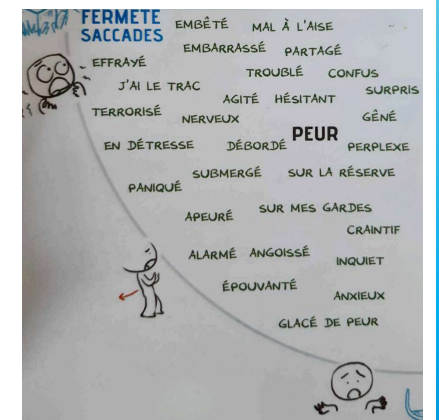 FERMETÉ
SACCADES
EMBÊTÉ MAL À L'AISE
EMBARRASSÉ PARTAGÉ
EFFRAYÉ
TROUBLÉ CONFUS
J'AI LE TRAC
SURPRIS
AGITÉ HÉSITANT
TERRORISÉ
NERVEUX
GÊNÉ
PEUR
EN DÉTRESSE
DÉBORDÉ
PERPLEXE
SUBMERGÉ SUR LA RÉSERVE
PANIQUÉ
APEURÉ
SUR MES GARDES
CRAINTIF
ALARMÉ ANGOISSÉ
INQUIET
ÉPOUVANTÉ
ANXIEUX
GLACÉ DE PEUR